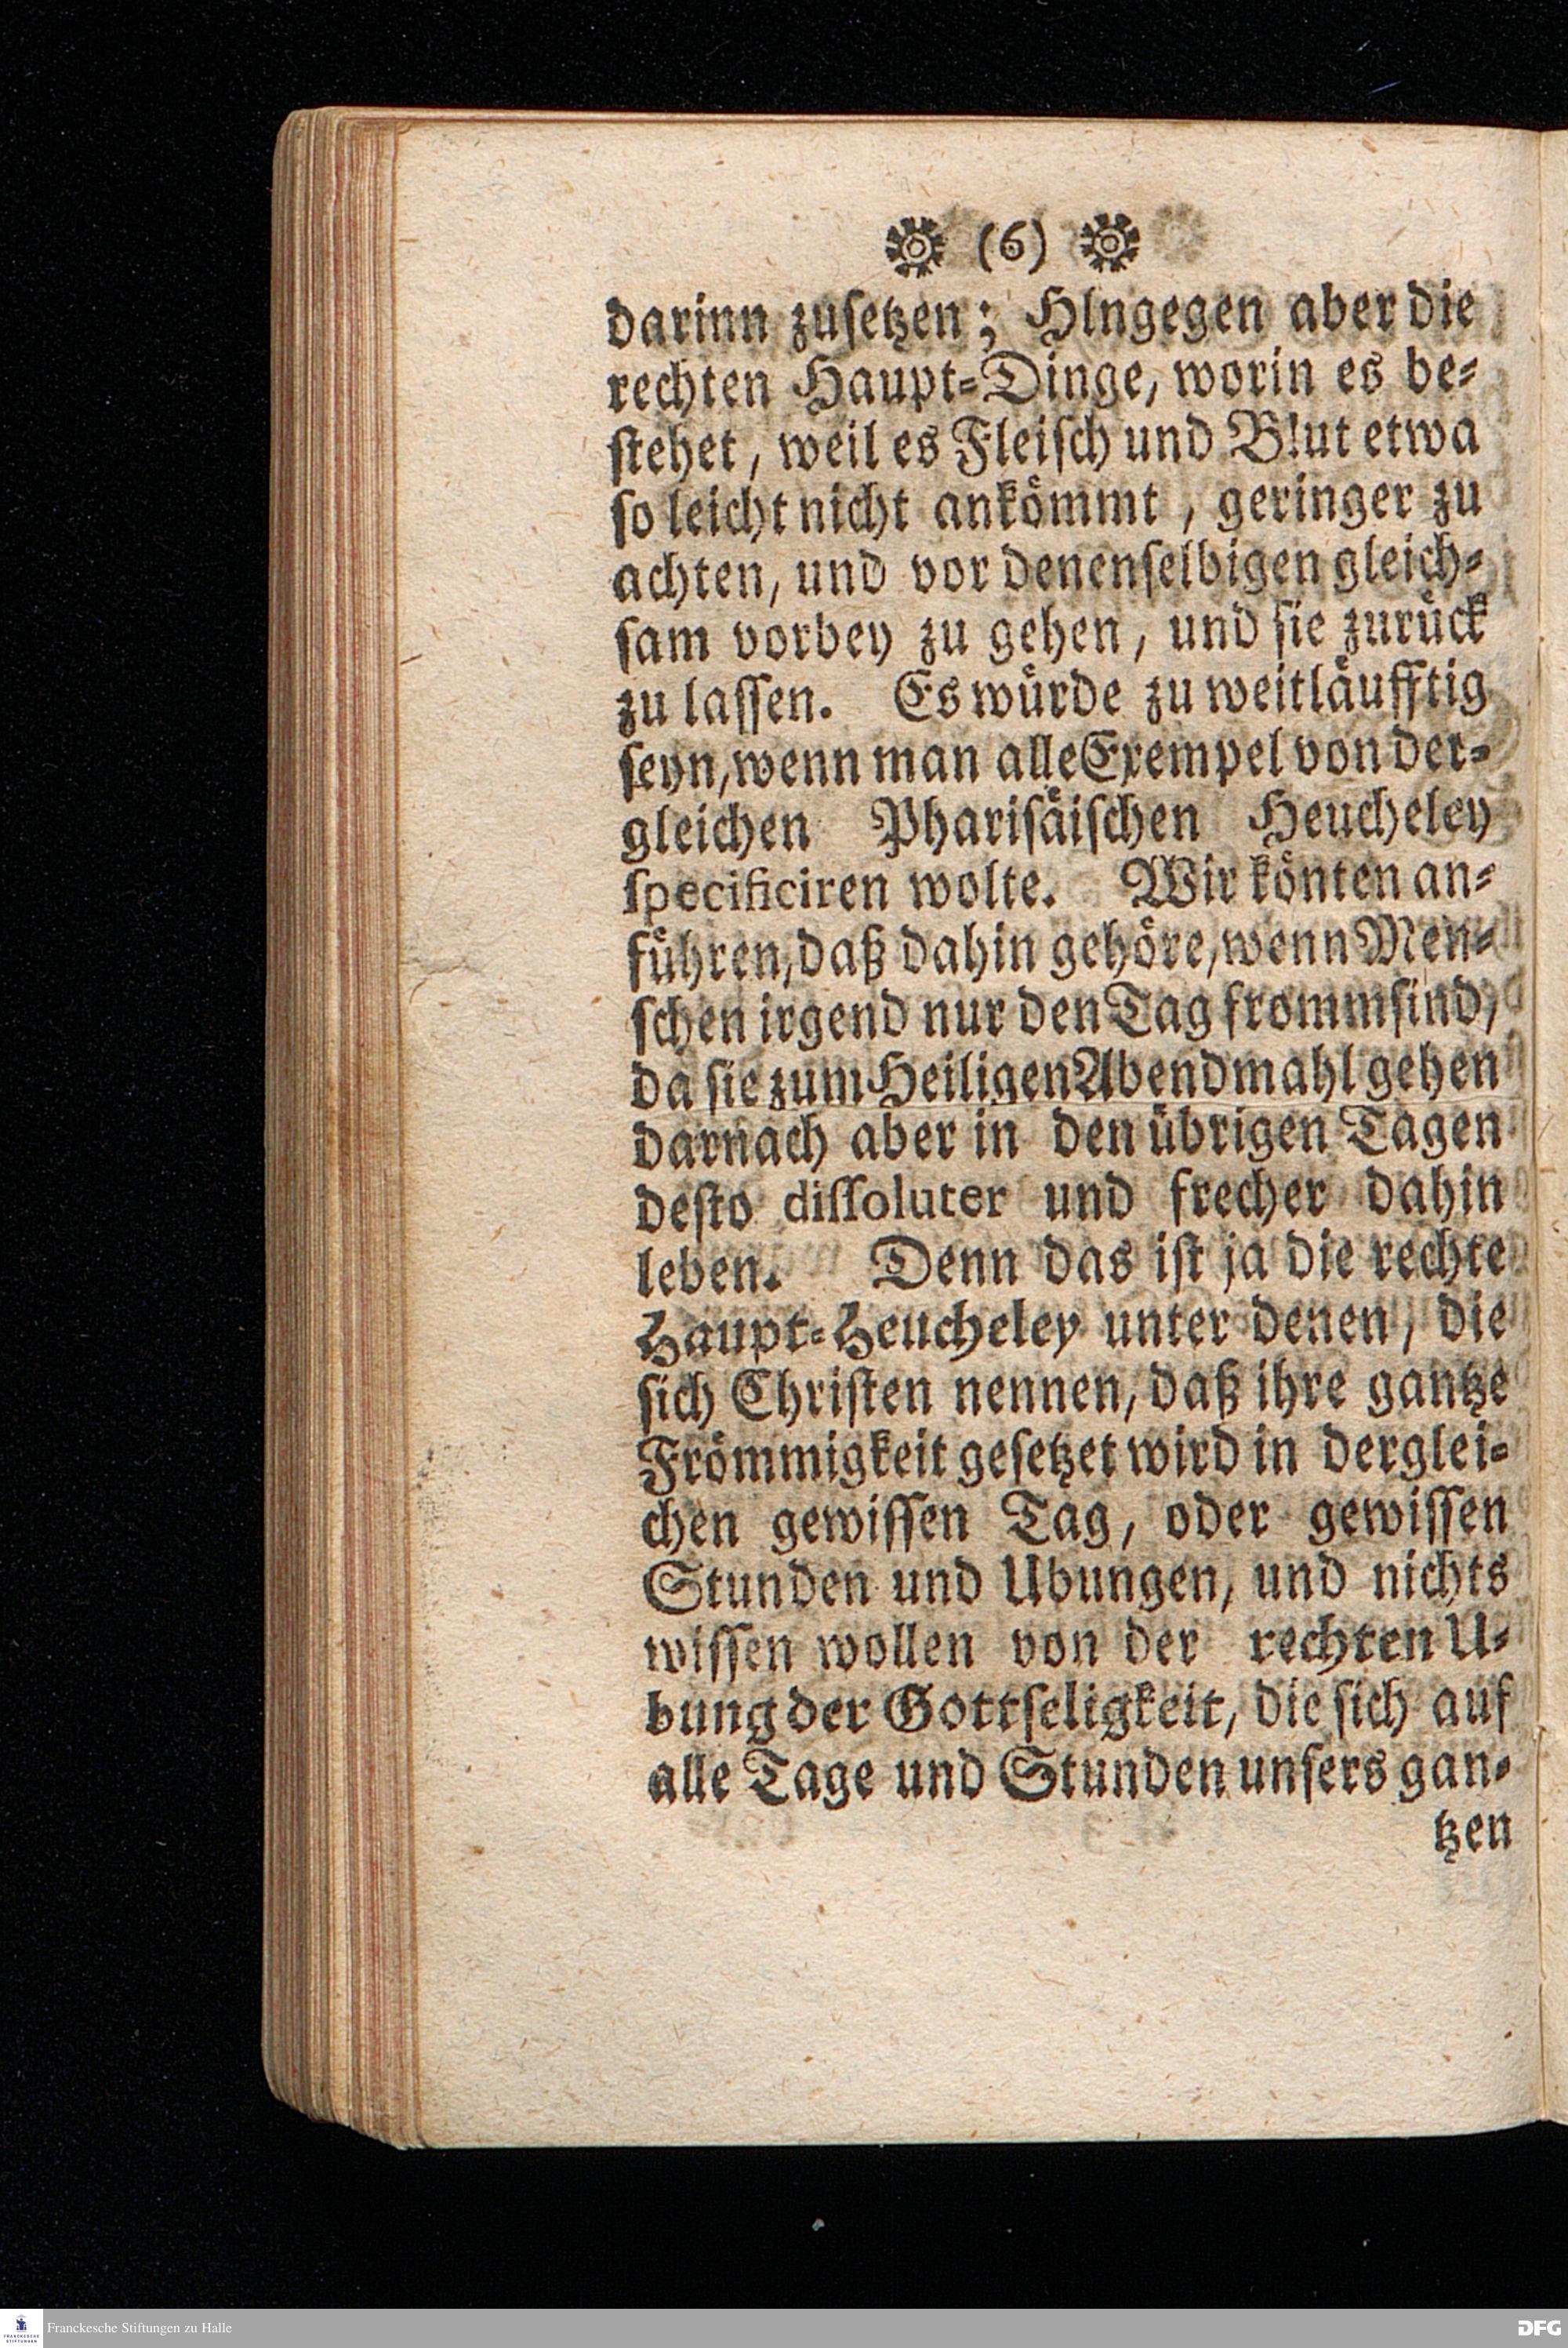 (6)
darinn zusetzen; HIngegen aber die
rechten Haupt-Dinge, worin es be-
stehet, weil es Fleisch und Blut etwa
so leicht nicht ankömmt, geringer zu
achten, und vor denenselbigen gleich-
sam vorbey zu gehen, und sie zurück
zu lassen. Es würde zu weitläufftig
seyn, wenn man alle Exempel von der-
gleichen Pharisäischen Heucheley
specificiren wolte. Wir könten an-
führen, daß dahin gehöre, wenn Men-
schen irgend nur den Tag fromm sind,
da sie zum Heiligen Abendmahl gehen
darnach aber in den übrigen Tagen
desto dissoluter und frecher dahin
leben. Denn das ist ja die rechte
Haupt-Heucheley unter denen, die
sich Christen nennen, daß ihre gantze
Frömmigkeit gesetzet wird in derglei-
chen gewissen Tag, oder gewissen
Stunden und Ubungen, und nichts
wissen wollen von der rechten U-
bung der Gottseligkeit, die sich auf
alle Tage und Stunden unsers gan-
tzen
FRANCKESCHE STIFTUNGEN
Franckesche Stiftungen zu Halle
DFG